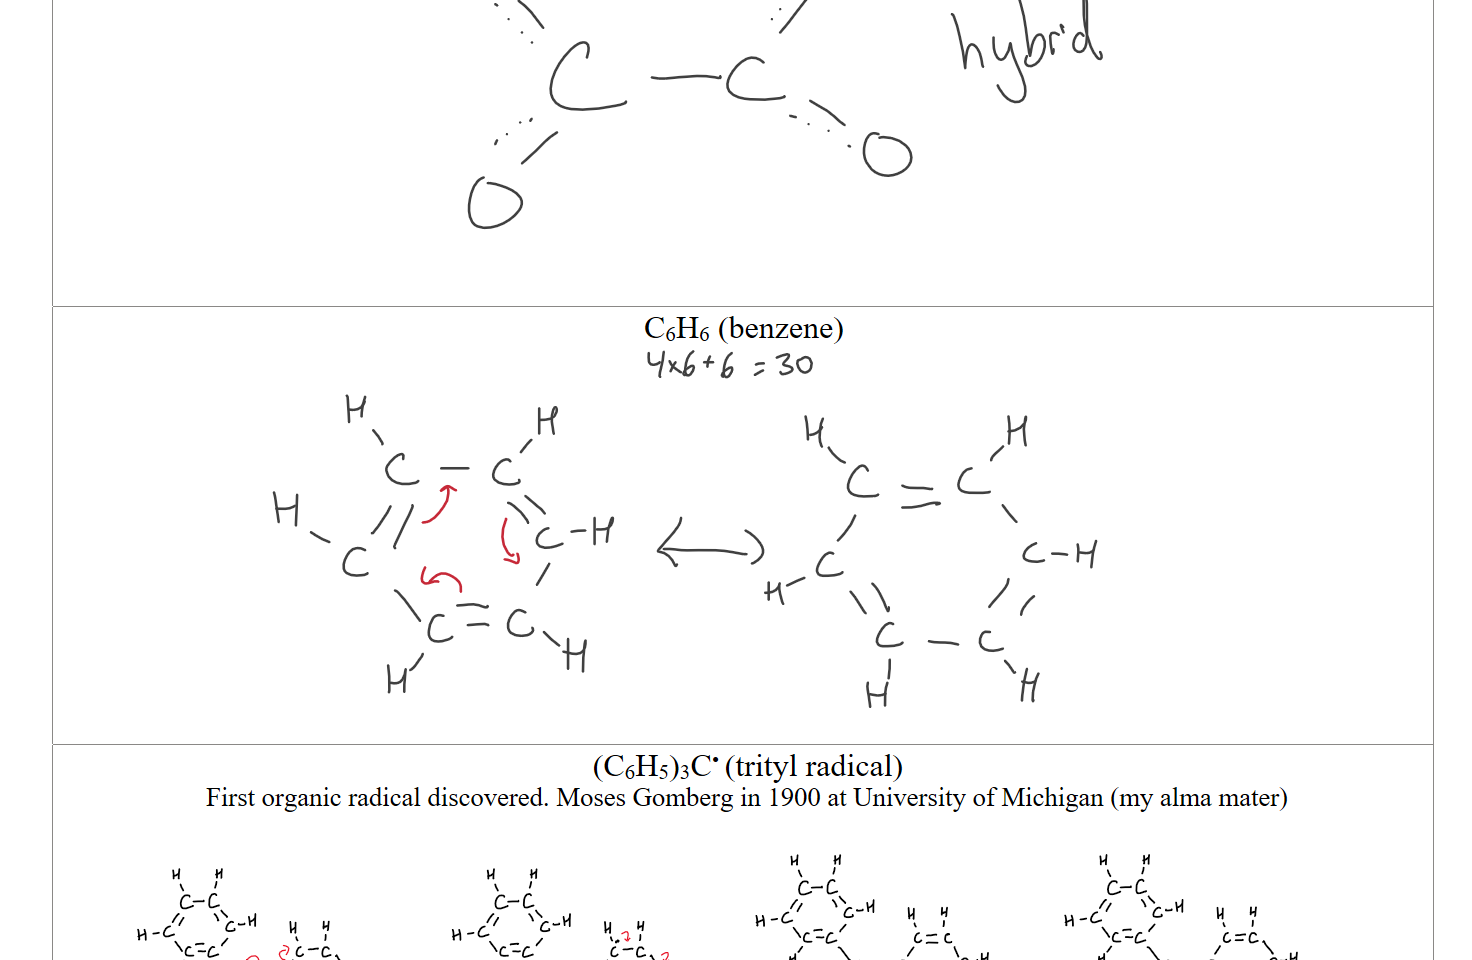 hybrid
C — C
O
O
C₆H₆ (benzene)
4x6+6 = 30
H H H H
C – C C = C
H C C–H C C–H
H
C = C C – C
H H H H
(C₆H₅)₃C• (trityl radical)
First organic radical discovered. Moses Gomberg in 1900 at University of Michigan (my alma mater)
H H H H H H H H
C–C C–C C–C C–C
C–H C–H C–H C–H
H–C H–C H–C H–C
H H H H H H H H
C=C C–C C=C C–C C=C C=C C=C C=C
H H H H